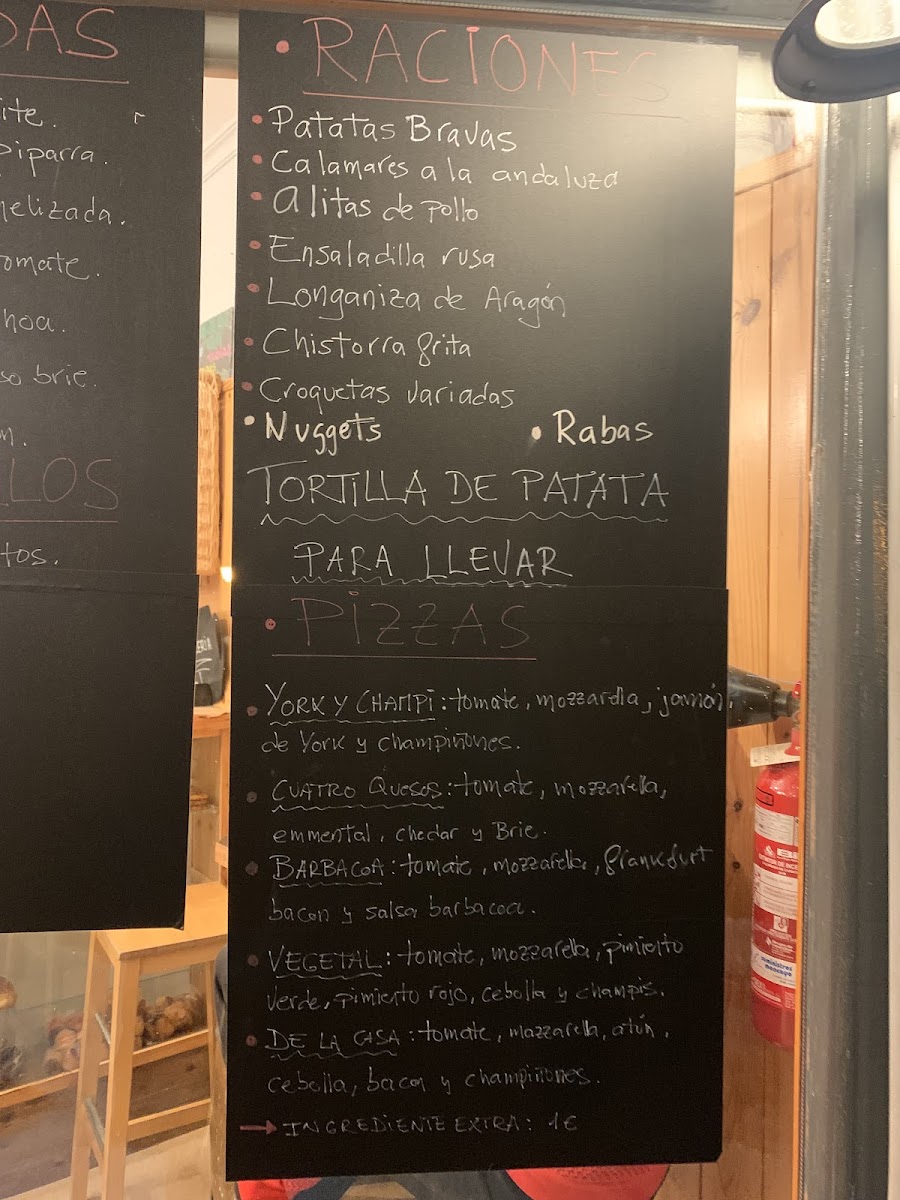 DAS
ite.
Piparra.
nelizada.
omate.
hoa.
so brie.
n.
LLOS
tos.
• RACIONES
• Patatas Bravas
• Calamares a la andaluza
• Alitas de pollo
• Ensaladilla rusa
• Longaniza de Aragón
• Chistorra frita
• Croquetas variadas
• Nuggets • Rabas
TORTILLA DE PATATA
PARA LLEVAR
• PIZZAS
• YORK Y CHAMPI: tomate, mozzarella, jamón,
de York y champiñones.
• CUATRO QUESOS: tomate, mozzarella,
emmental, chedar y Brie.
• BARBACOA: tomate, mozzarella, frankfurt
bacon y salsa barbacoa.
• VEGETAL: tomate, mozzarella, pimiento
verde, pimiento rojo, cebolla y champis.
• DE LA CASA: tomate, mazzarella, atún,
cebolla, bacon y champiñones.
→ INGREDIENTE EXTRA: 1€